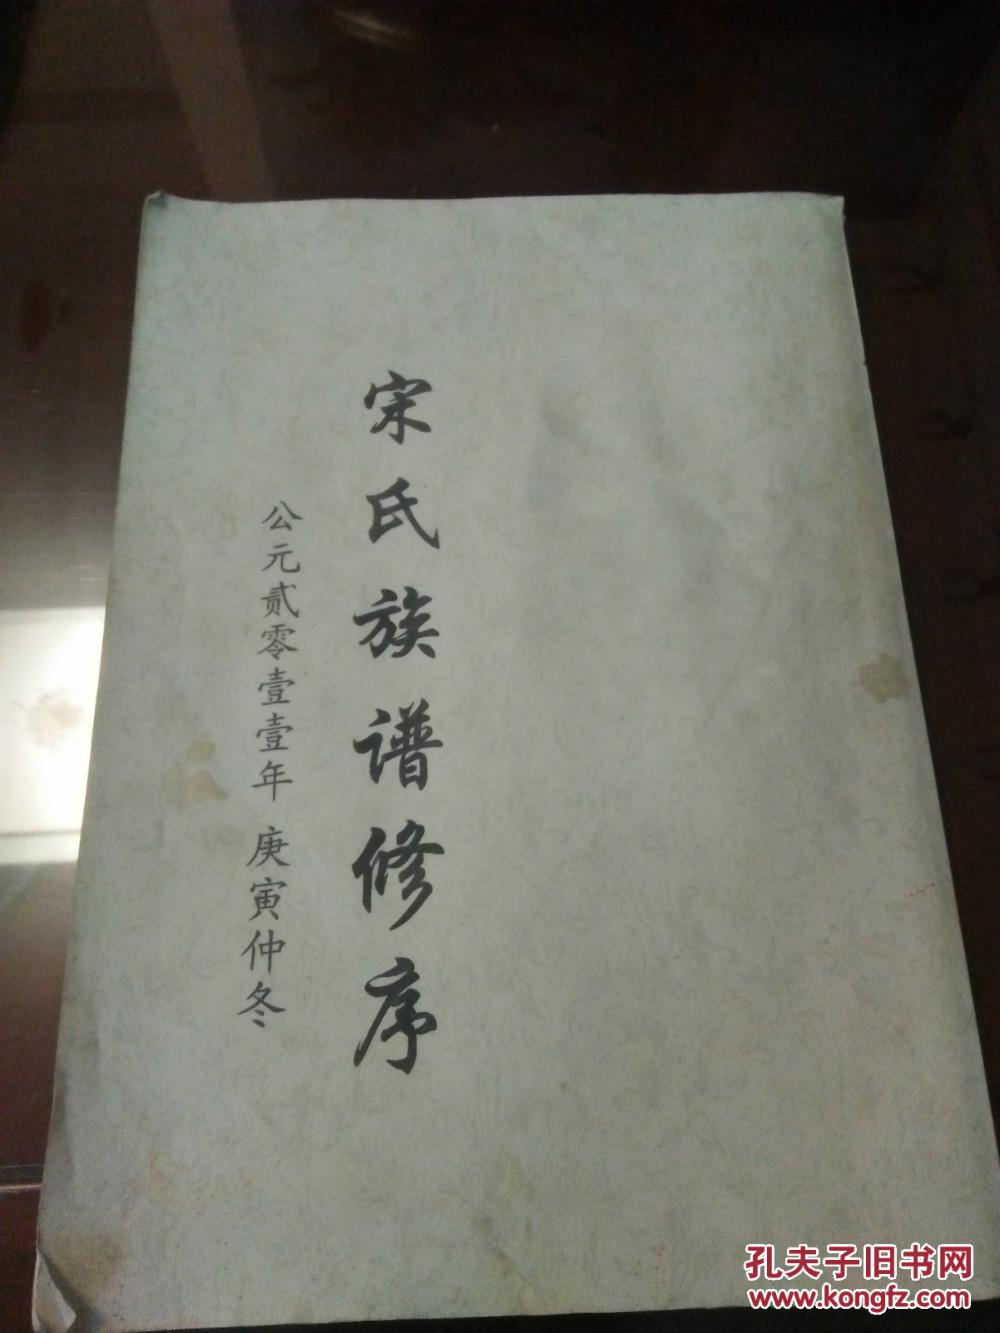 宋氏族谱修序
公元贰零壹壹年 庚寅仲冬
孔夫子旧书网
www.kongfz.com